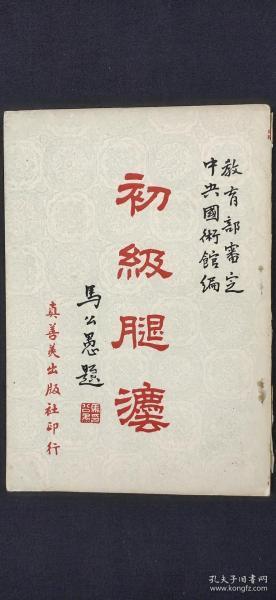 教育部審定
中央國術館編
初級腿灋
馬公愚題
真善美出版社印行
孔夫子旧书网